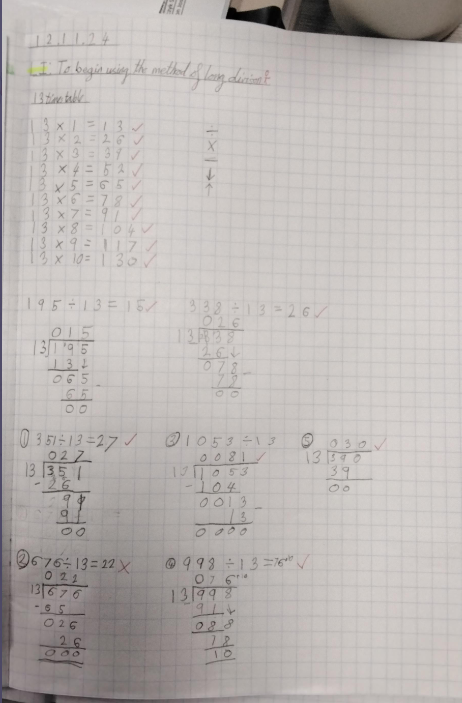 12.11.24
I: To begin using the method of long division
13 times table
13 x 1 = 13 ✓
13 x 2 = 26 ✓
13 x 3 = 39 ✓
13 x 4 = 52 ✓
13 x 5 = 65 ✓
13 x 6 = 78 ✓
13 x 7 = 91 ✓
13 x 8 = 104 ✓
13 x 9 = 117 ✓
13 x 10 = 130 ✓
÷
x
−
↓
↑
195 ÷ 13 = 15 ✓
015
13 195
13↓
065
65 -
00
338 ÷ 13 = 26 ✓
026
13 338
26↓
078
78 -
00
① 351 ÷ 13 = 27 ✓
027
13 351
- 26
91
91
00
② 676 ÷ 13 = 22 x
022
13 676
- 65
026
26
000
③ 1053 ÷ 13
0081 ✓
13 1053
- 104
0013
13 -
0000
④ 998 ÷ 13 = 76 r10 ✓
076 r10
13 998
91↓
088
78
10
⑤ 030 ✓
13 390
39
00